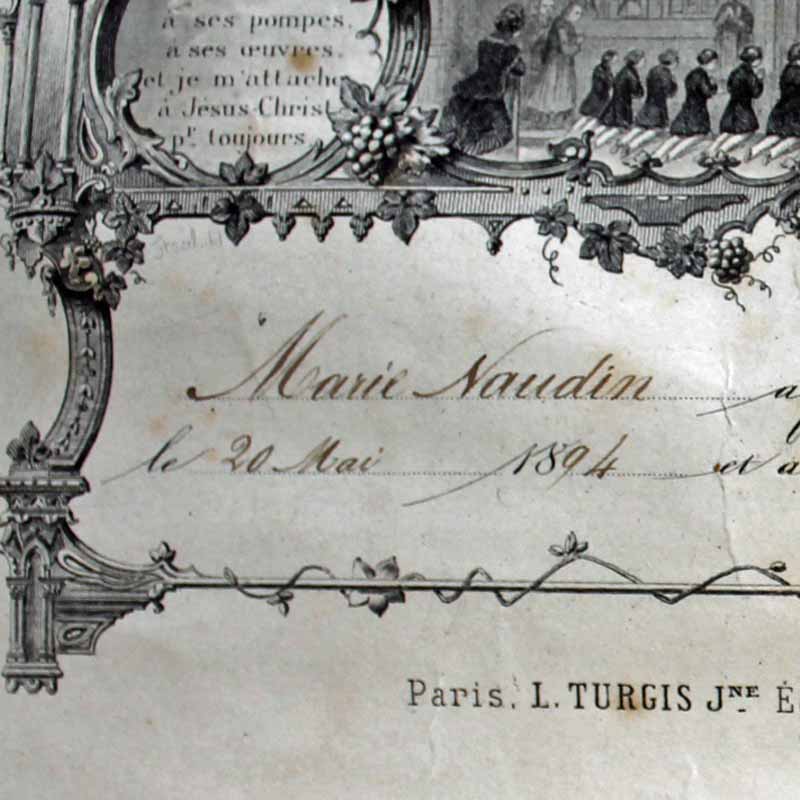 à ses pompes,
à ses œuvres,
et je m'attache
à Jésus-Christ
pr. toujours.
Marie Naudin a
le 20 Mai 1894 et a
Paris, L. TURGIS JNE É